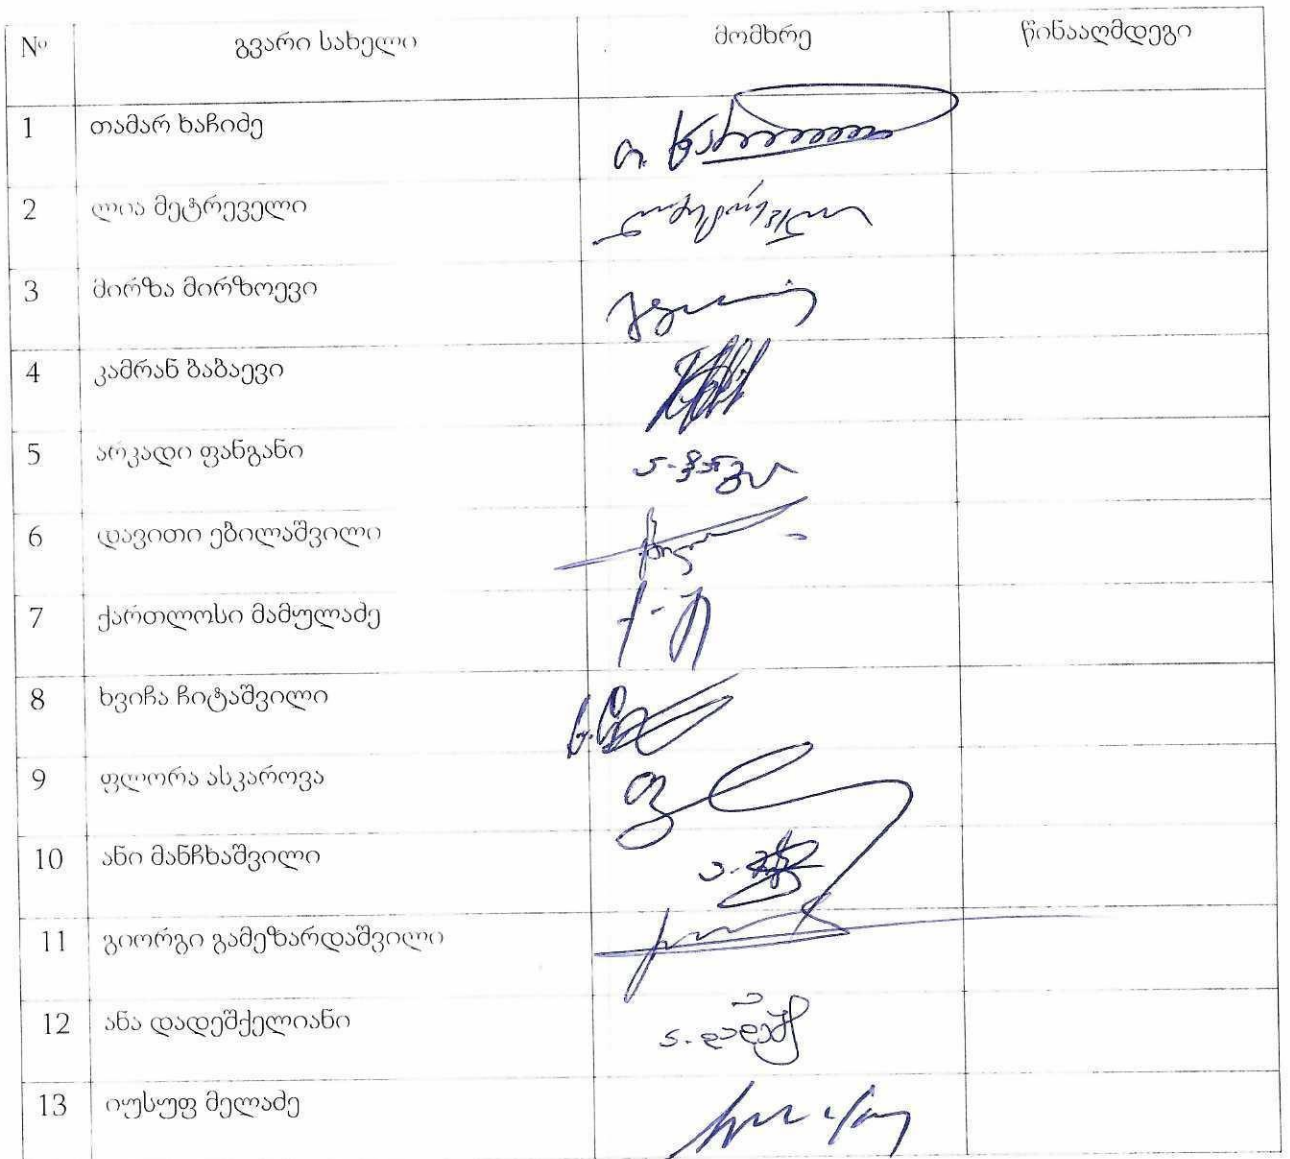 № გვარი სახელი მომხრე წინააღმდეგი
1 თამარ ხაჩიძე
2 ლია მეტრეველი
3 მირზა მირზოევი
4 კამრან ბაბაევი
5 არკადი ფანგანი
6 დავითი ებილაშვილი
7 ქართლოსი მამულაძე
8 ხვიჩა ჩიტაშვილი
9 ფლორა ასკაროვა
10 ანი მანჩხაშვილი
11 გიორგი გამეზარდაშვილი
12 ანა დადეშქელიანი ა. დადეშქ
13 იუსუფ მელაძე